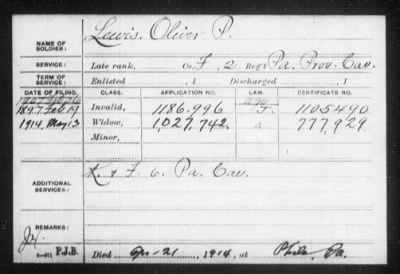 NAME OF SOLDIER: Lewis, Oliver P.
SERVICE: Late rank, Co. F, 2 Reg't Pa. Prov. Cav.
TERM OF SERVICE: Enlisted , 1 Discharged , 1
DATE OF FILING. CLASS. APPLICATION NO. LAW. CERTIFICATE NO.
1897 Feb. 19 Invalid, 1186.996 1105490
1914, May 13 Widow, 1,027,742 777,929
Minor,
ADDITIONAL SERVICES: K & F. 6 Pa. Cav.
REMARKS:
P.J.B. Died Apr-21, 1914, at Phila, Pa.